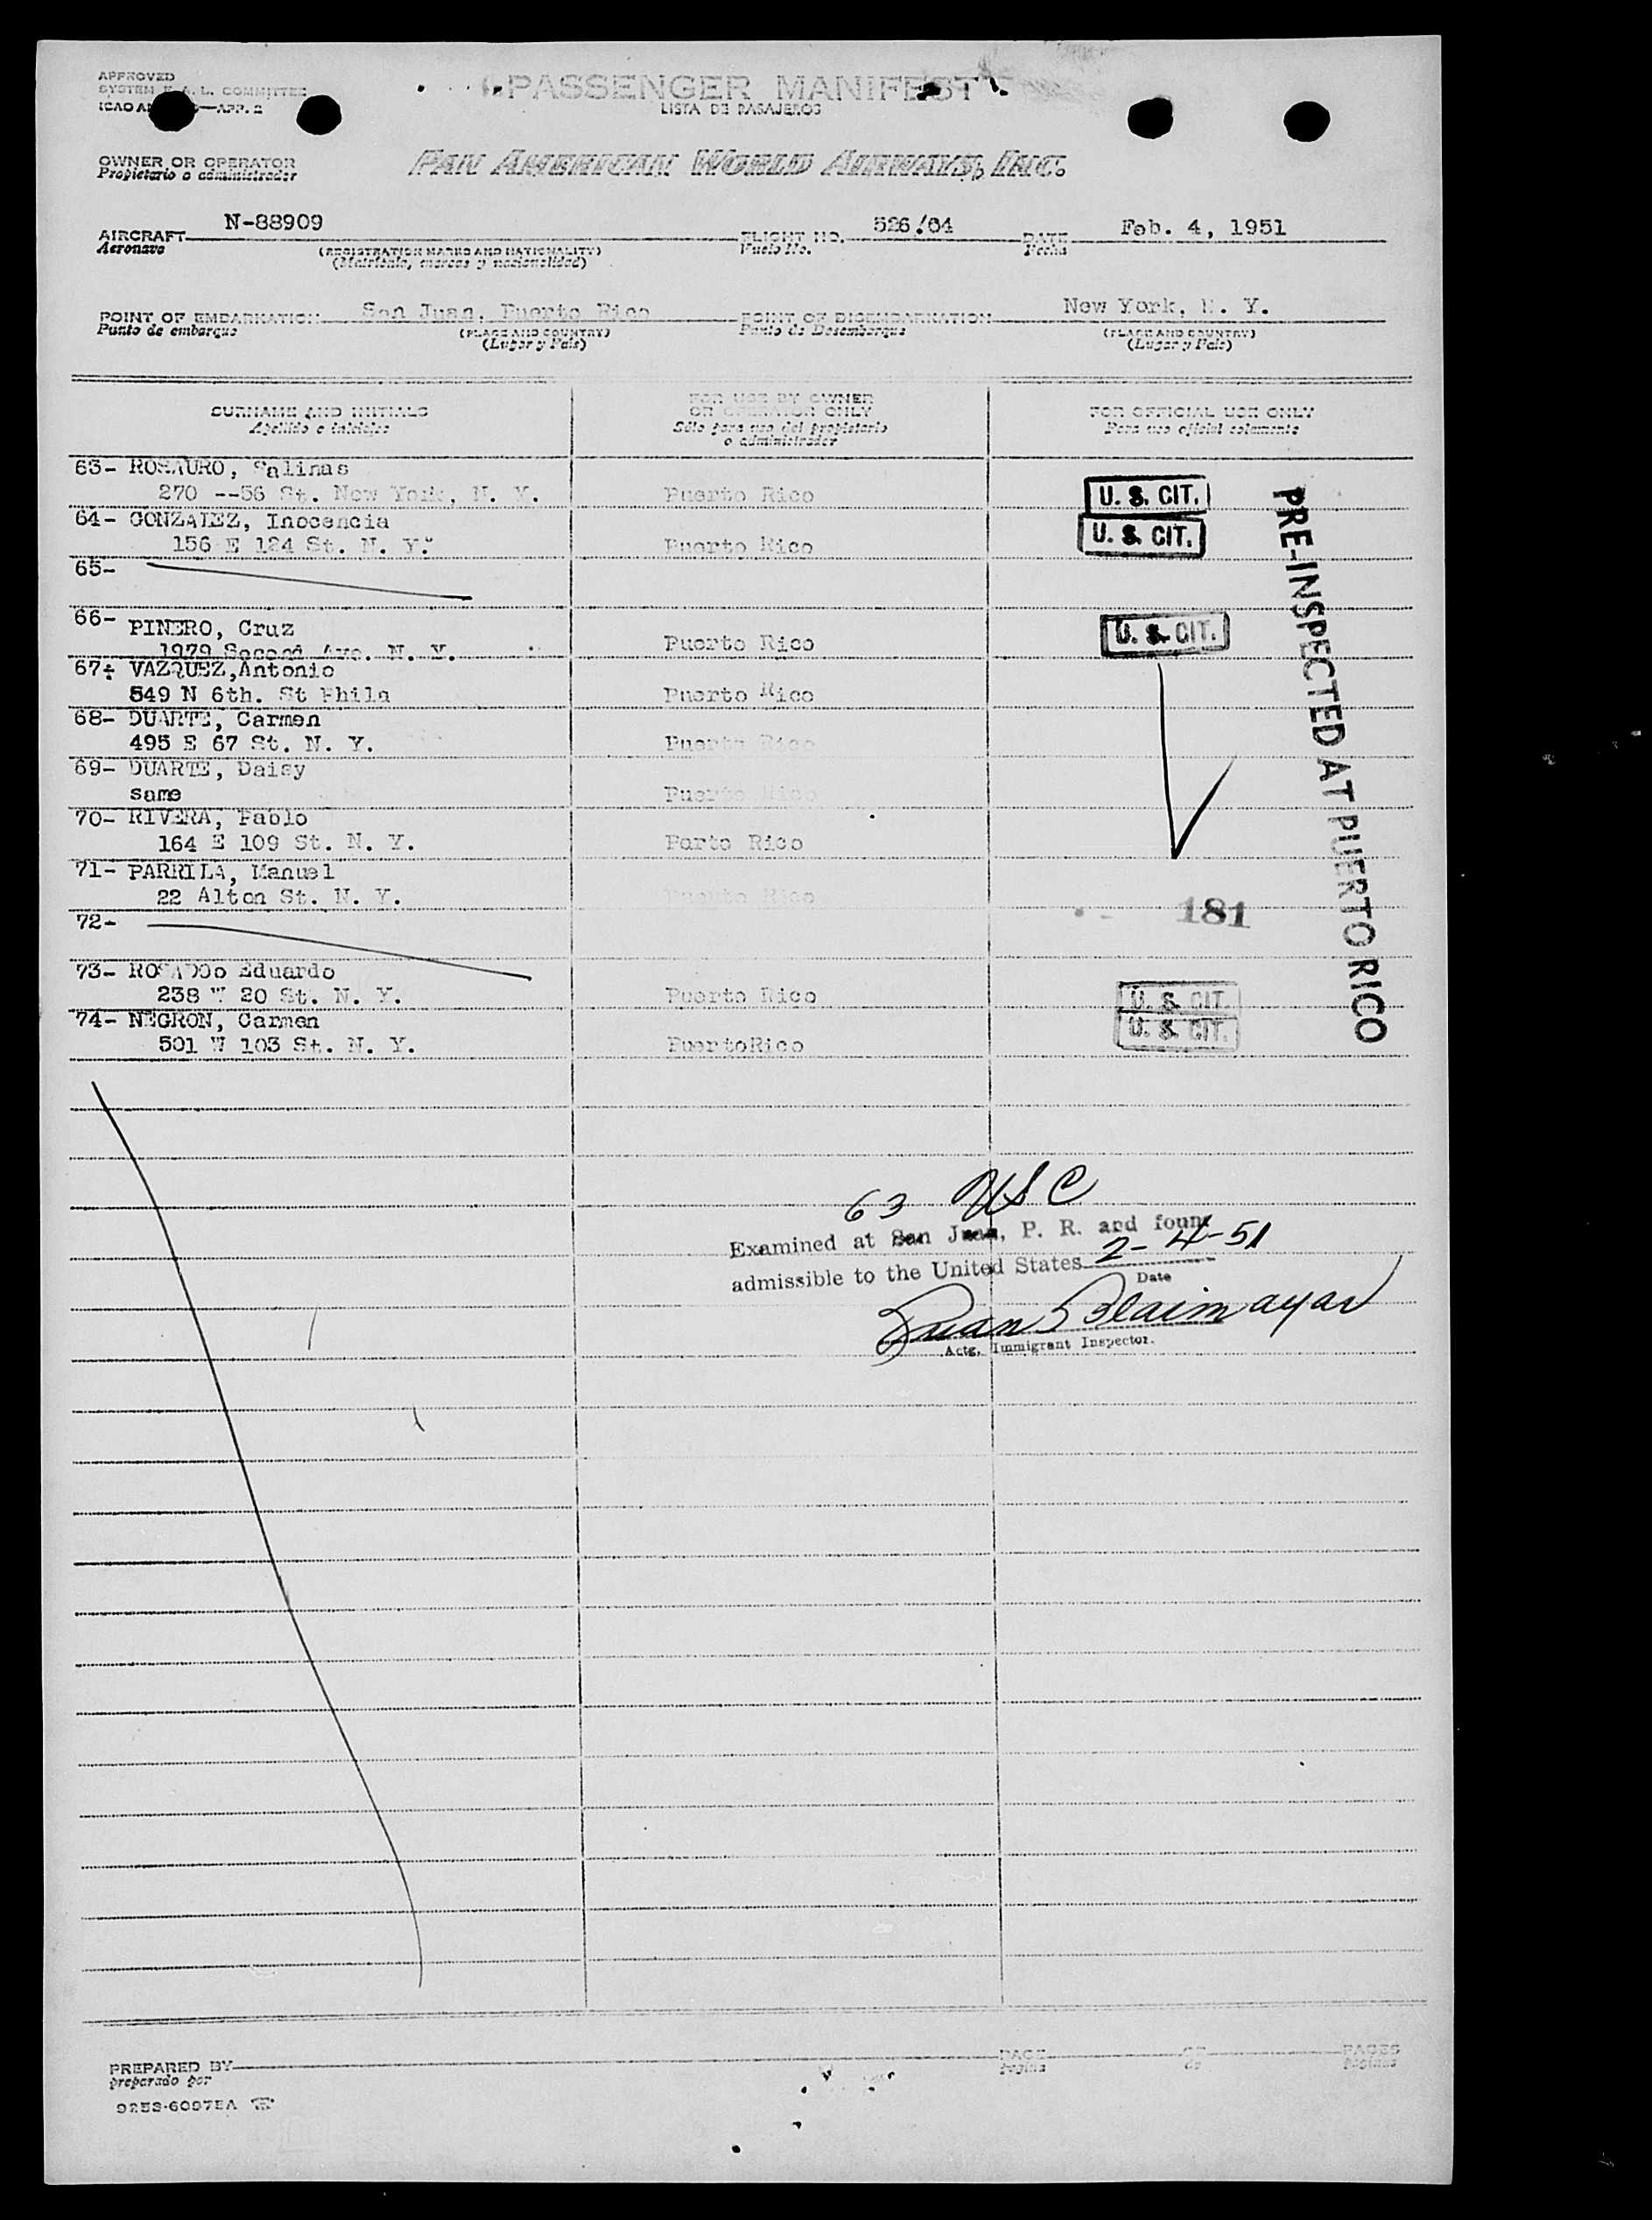 APPROVED
SYSTEM F. A. L. COMMITTEE
ICAO —APP. 2
PASSENGER MANIFEST
LISTA DE PASAJEROS
OWNER OR OPERATOR
Propietario o administrador
PAN AMERICAN WORLD AIRWAYS, INC.
AIRCRAFT N-88909 FLIGHT NO. 526/04 DATE Feb. 4, 1951
Aeronave (REGISTRATION MARKS AND NATIONALITY) Vuelo No. Fecha
(Matrícula, marcas y nacionalidad)
POINT OF EMBARKATION San Juan, Puerto Rico POINT OF DISEMBARKATION New York, N. Y.
Punto de embarque (PLACE AND COUNTRY) Punto de Desembarque (PLACE AND COUNTRY)
(Lugar y País) (Lugar y País)
SURNAME AND INITIALS FOR USE BY OWNER OR OPERATOR ONLY FOR OFFICIAL USE ONLY
Apellido e iniciales Sólo para uso del propietario o administrador Para uso oficial solamente
63- ROSAURO, Salinas
270 --56 St. New York, N. Y. Puerto Rico U. S. CIT.
64- GONZALEZ, Inocencia
156 E 124 St. N. Y. Puerto Rico U. S. CIT.
65-
66- PINERO, Cruz
1979 Second Ave. N. Y. Puerto Rico U. S. CIT.
67- VAZQUEZ,Antonio
549 N 6th. St Phila Puerto Rico
68- DUARTE, Carmen
495 E 67 St. N. Y. Puerto Rico
69- DUARTE, Daisy
same Puerto Rico
70- RIVERA, Pablo
164 E 109 St. N. Y. Porto Rico
71- PARRILA, Manuel
22 Alton St. N. Y. Puerto Rico 181
72-
73- ROSADOo Eduardo
238 W 20 St. N. Y. Puerto Rico U. S. CIT.
74- NEGRON, Carmen
501 W 103 St. N. Y. PuertoRico U. S. CIT.
PRE-INSPECTED AT PUERTO RICO
63 USC
Examined at San Juan, P. R. and found
admissible to the United States 2-4-51
Date
Juan Blaimayar
Actg. Immigrant Inspector.
PREPARED BY PAGE OF PAGES
preparado por Página de Páginas